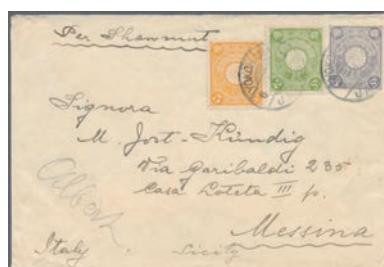 Per Shawmut
Signora
M. Jost-Kündig
Via Garibaldi 235
Casa Loteta III p.
Messina
Italy. Sicily
Albert